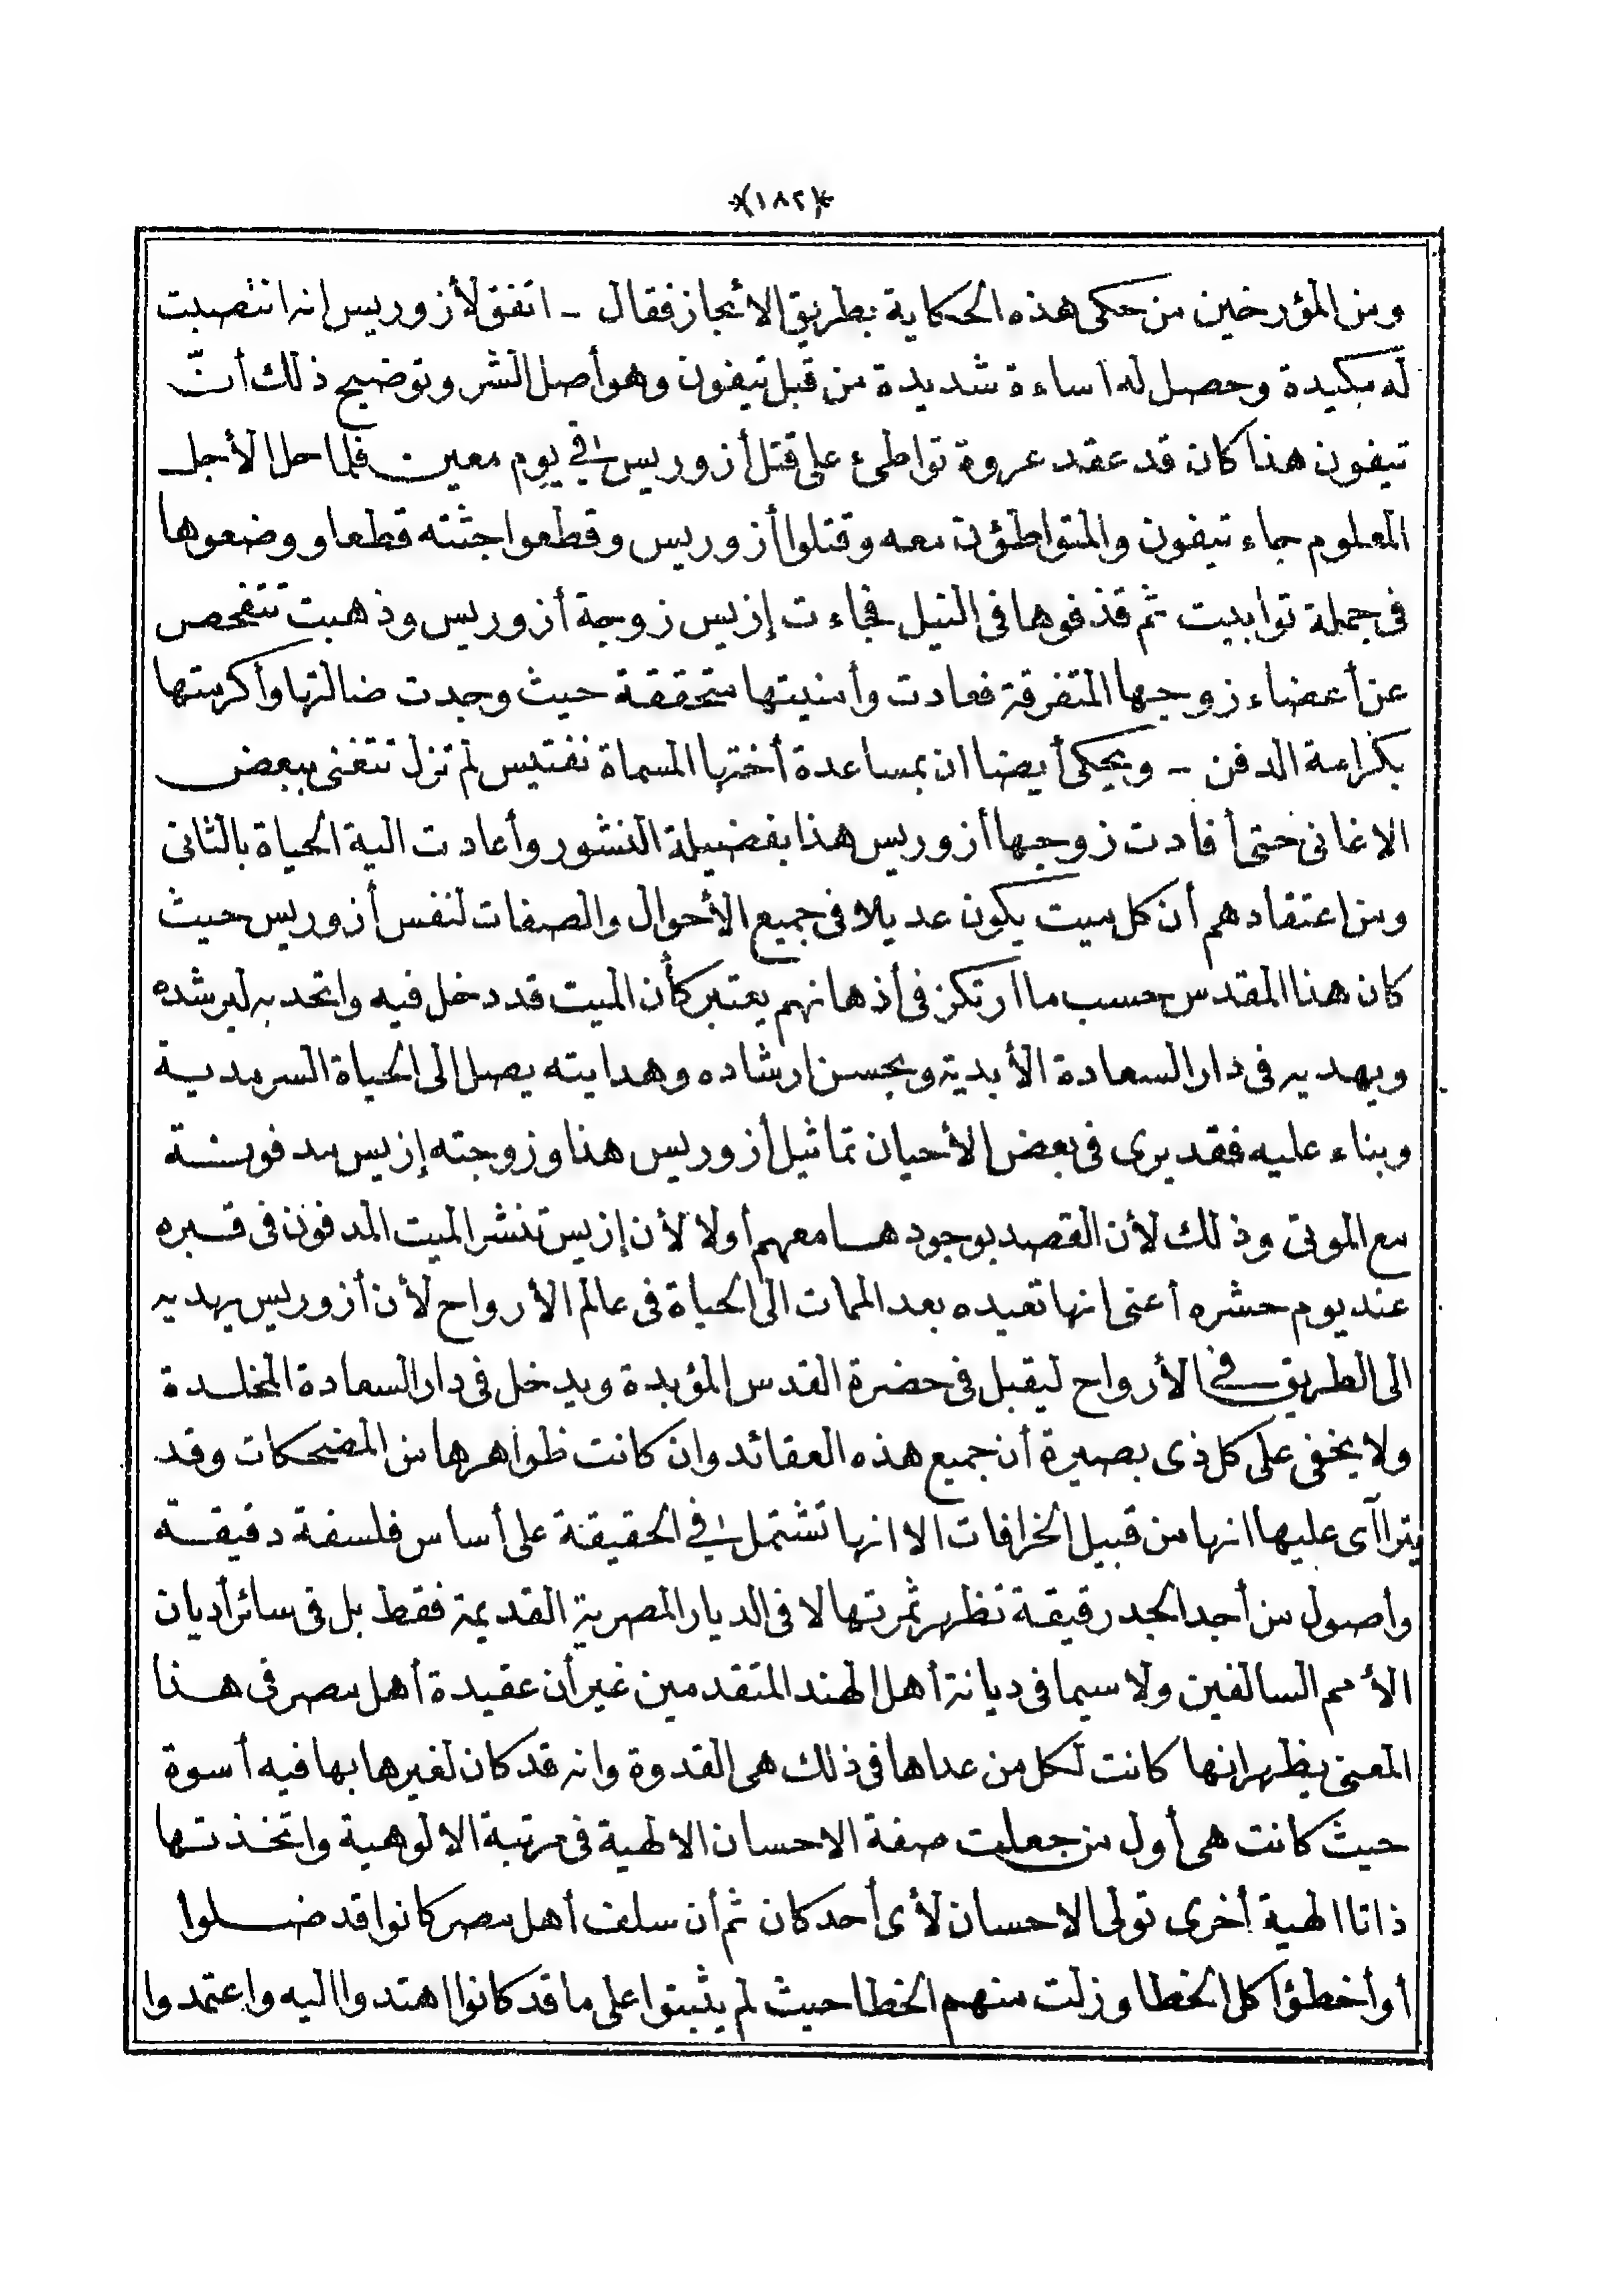 *(١٨٢)*
ومن المؤرخين من حكى هذه الحكاية بطريق الايجاز فقال - اتفق لأزوريس انه انتصبت
له مكيدة وحصل له اساءة شديدة من قبل تيفون وهو أصل الشر وتوضيح ذلك أنّ
تيفون هذا كان قد عقد عروة تواطئ على قتل أزوريس في يوم معين فلما حل الأجل
المعلوم جاء تيفون والمتواطؤن معه وقتلوا أزوريس وقطعوا جثته قطعا ووضعوها
فى جملة توابيت ثم قذفوها فى النيل فجاءت إزيس زوجة أزوريس وذهبت تتفحص
عن أعضاء زوجها المتفرقة فعادت وأمنيتها متحققة حيث وجدت ضالتها وأكرمتها
بكرامة الدفن - ويحكى أيضا ان بمساعدة أختها المسماة نفتيس لم تزل تتغنى ببعض
الاغانى حتى أفادت زوجها أزوريس هذا بفضيلة النشور وأعادت الية الحياة بالثانى
ومن اعتقادهم أن كل ميت يكون عديلا فى جميع الأحوال والصفات لنفس أزوريس حيث
كان هذا المقدس حسب ما ارتكز فى أذهانهم يعتبر كأن الميت قد دخل فيه واتحد به ليرشده
ويهديه فى دار السعادة الأبدية وبحسن ارشاده وهدايته يصل الى الحياة السرمدية
وبناء عليه فقد يرى فى بعض الأحيان تماثيل أزوريس هذا وزوجته إزيس مدفونة
مع الموتى وذلك لأن القصد بوجودهما معهم أولا لأن إزيس تنشر الميت المدفون فى قبره
عند يوم حشره أعنى انها تعيده بعد الممات الى الحياة فى عالم الأرواح لأن أزوريس يهديه
الى الطريق في الأرواح ليقبل فى حضرة القدس المؤبدة ويدخل فى دار السعادة المخلدة
ولا يخفى على كل ذى بصيرة أن جميع هذه العقائد وان كانت ظواهرها من المضحكات وقد
يتراآى عليها انها من قبيل الخرافات الا انها تشتمل في الحقيقة على أساس فلسفة دقيقة
وأصول من أجد الجد رقيقة تظهر ثمرتها لا فى الديار المصرية القديمة فقط بل فى سائر أديان
الأمم السالفين ولا سيما فى ديانة أهل الهند المتقدمين غير أن عقيدة أهل مصر فى هذا
المعنى يظهر انها كانت لكل من عداها فى ذلك هى القدوة وانه قد كان لغيرها بها فيه أسوة
حيث كانت هى أول من جعلت صفة الاحسان الالهية فى مرتبة الالوهية واتخذتها
ذاتا الهية أخرى تولى الاحسان لأى أحد كان ثم أن سلف أهل مصر كانوا قد ضلوا
أو أخطؤا كل الخطا وزلت منهم الخطا حيث لم يثبتوا على ما قد كانوا اهتدوا اليه واعتمدوا